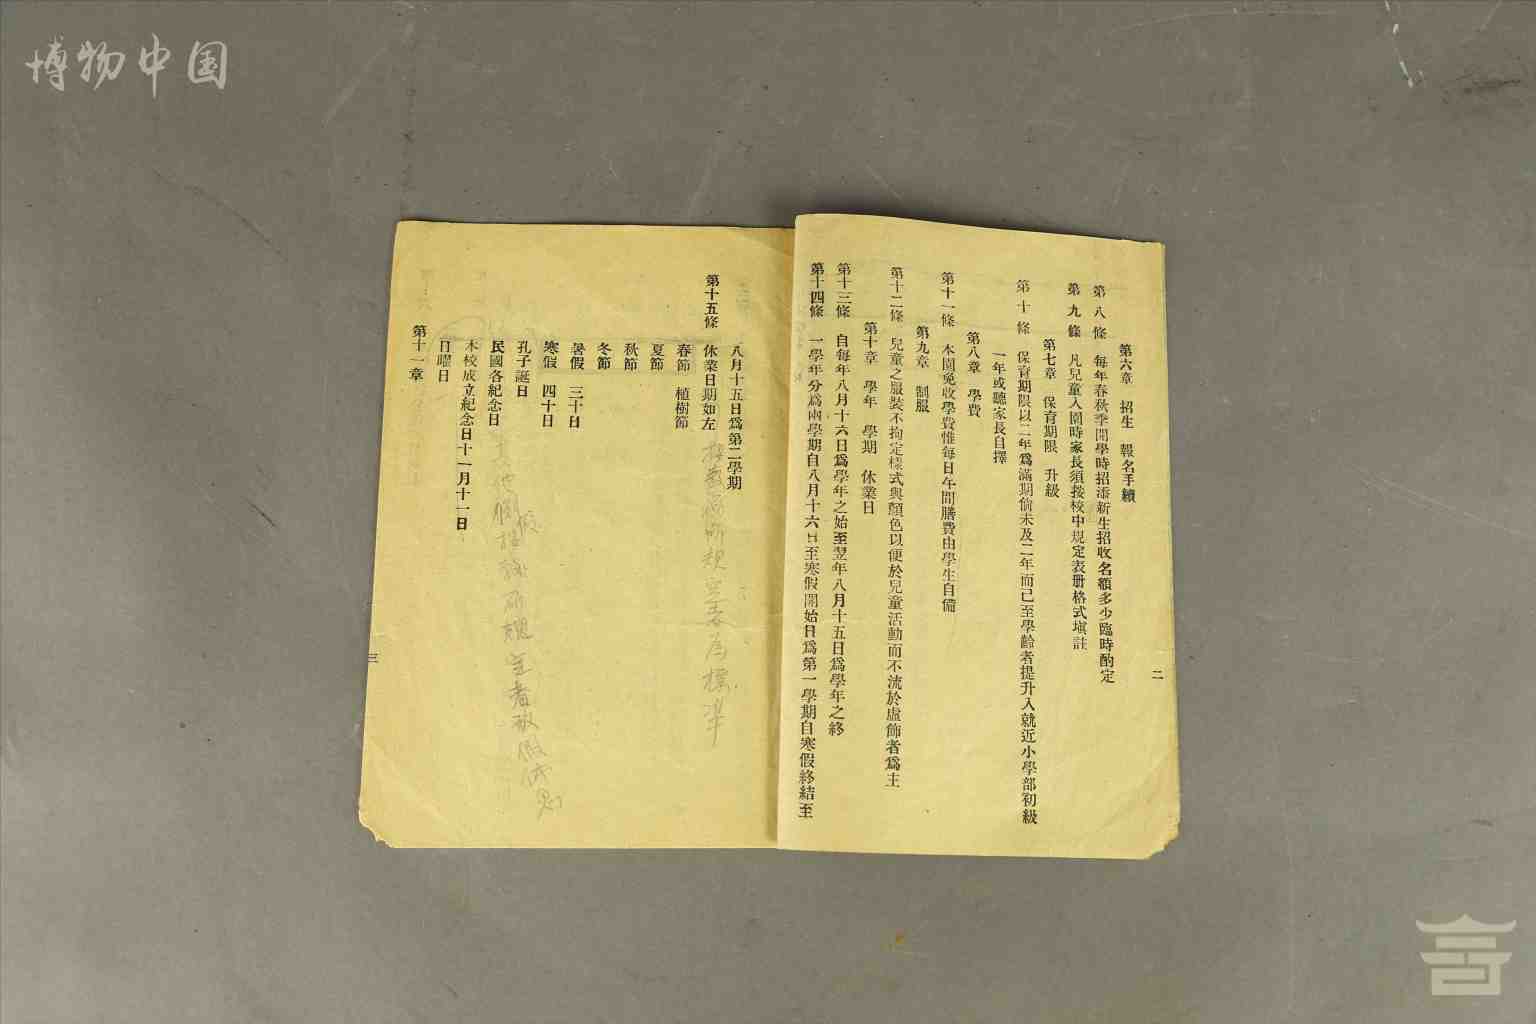 博物中国
第六章　招生　報名手續
第八條　每年春秋季開學時招添新生招收名額多少臨時酌定
第九條　凡兒童入園時家長須按校中規定表册格式塡註
第七章　保育期限　升級
第十條　保育期限以二年爲滿期倘未及二年而已至學齡者提升入就近小學部初級
一年或聽家長自擇
第八章　學費
第十一條　本園免收學費惟每日午間膳費由學生自備
第九章　制服
第十二條　兒童之服裝不拘定樣式與顏色以便於兒童活動而不流於虛飾者爲主
第十章　學年　學期　休業日
第十三條　自每年八月十六日爲學年之始至翌年八月十五日爲學年之終
第十四條　一學年分爲兩學期自八月十六日至寒假開始日爲第一學期自寒假終結至
二
八月十五日爲第二學期
第十五條　休業日期如左
規定者為標準
春節　植樹節
夏節
秋節
冬節
暑假　三十日
寒假　四十日
孔子誕日
民國各紀念日
本校成立紀念日十一月十一日
日曜日
第十一章
三